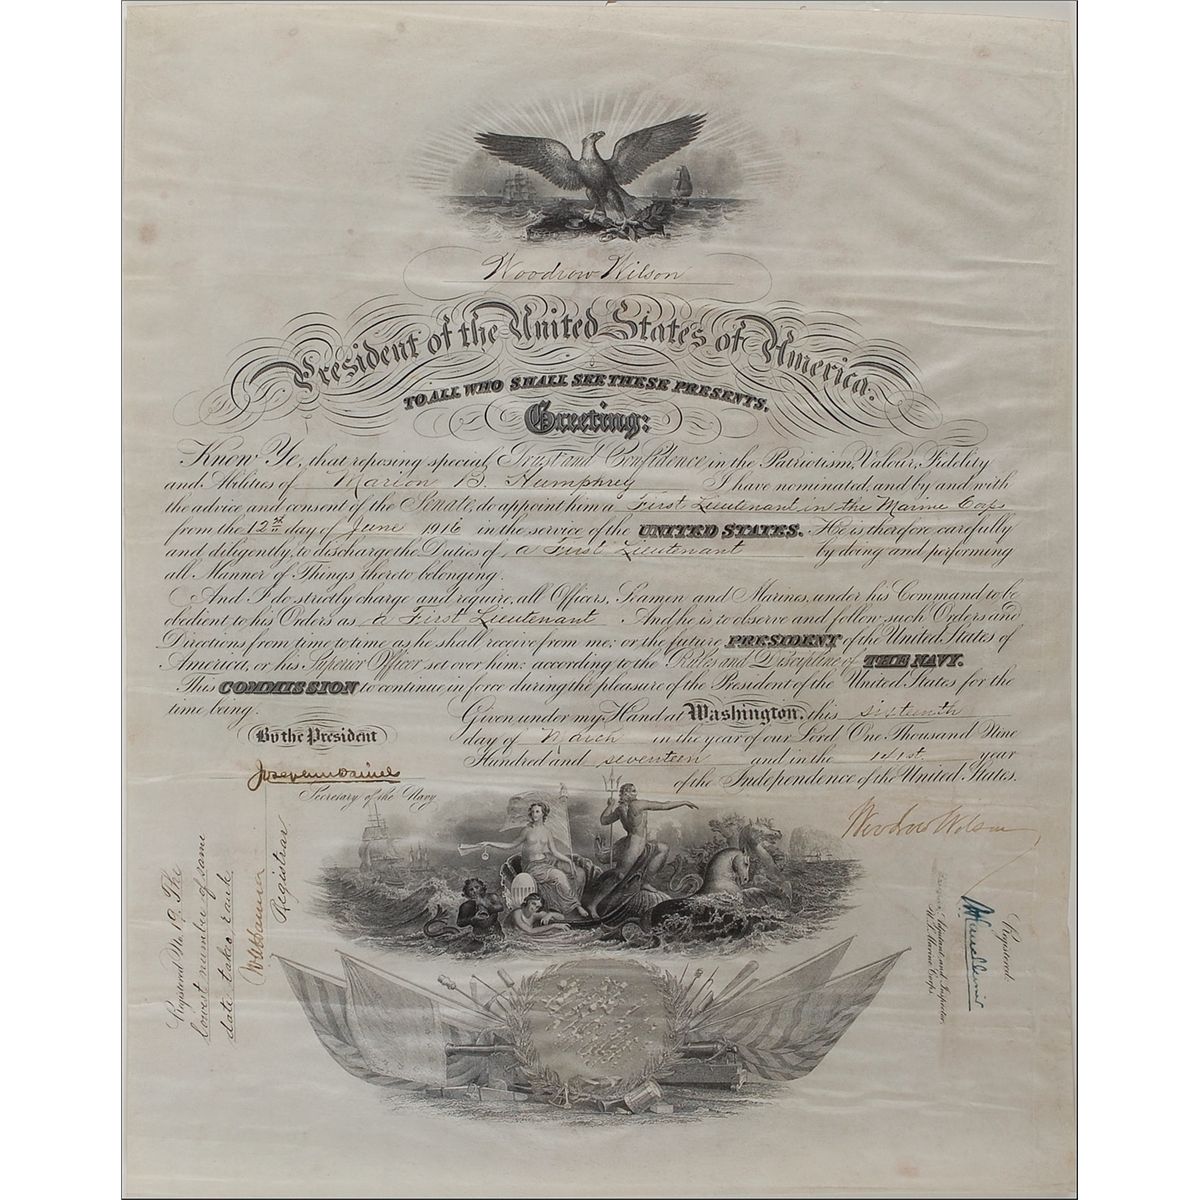 Woodrow Wilson
President of the United States of America.
TO ALL WHO SHALL SEE THESE PRESENTS,
Greeting:
Know Ye, that reposing special Trust and Confidence in the Patriotism, Valour, Fidelity
and Abilities of Marion B. Humphrey I have nominated, and by and with
the advice and consent of the Senate, do appoint him a First Lieutenant in the Marine Corps
from the 12th day of June 1916 in the service of the UNITED STATES. He is therefore carefully
and diligently to discharge the Duties of a First Lieutenant by doing and performing
all Manner of Things thereto belonging.
And I do strictly charge and require, all Officers, Seamen and Marines, under his Command to be
obedient to his Orders as a First Lieutenant And he is to observe and follow such Orders and
Directions from time to time as he shall receive from me; or the future PRESIDENT of the United States of
America, or his Superior Officer set over him; according to the Rules and Discipline of THE NAVY.
This COMMISSION to continue in force during the pleasure of the President of the United States for the
time being.
Given under my Hand at Washington, this sixteenth
day of March in the year of our Lord One Thousand Nine
Hundred and seventeen and in the 141st year
of the Independence of the United States.
By the President
Josephus Daniels
Secretary of the Navy
Woodrow Wilson
Registered No 19. The
lowest number of same
date takes rank.
Registrar
Registered:
Adjutant and Inspector,
U.S. Marine Corps.